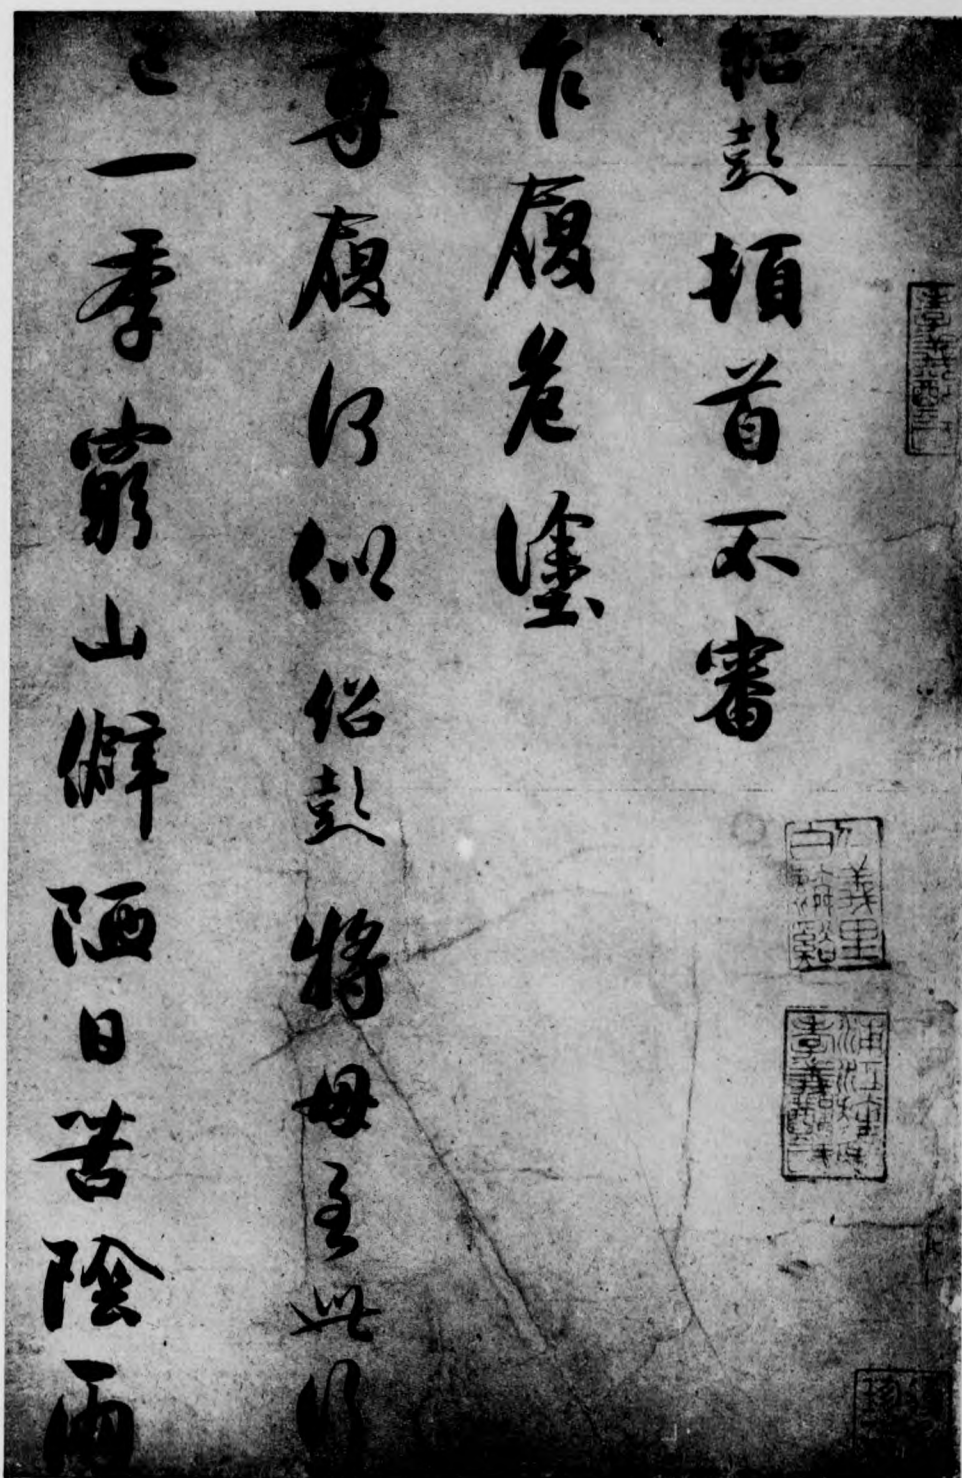 紹彭頓首不審
乍履危塗
尊履何似紹彭將母至此行
已一季窮山僻陋日苦陰雨